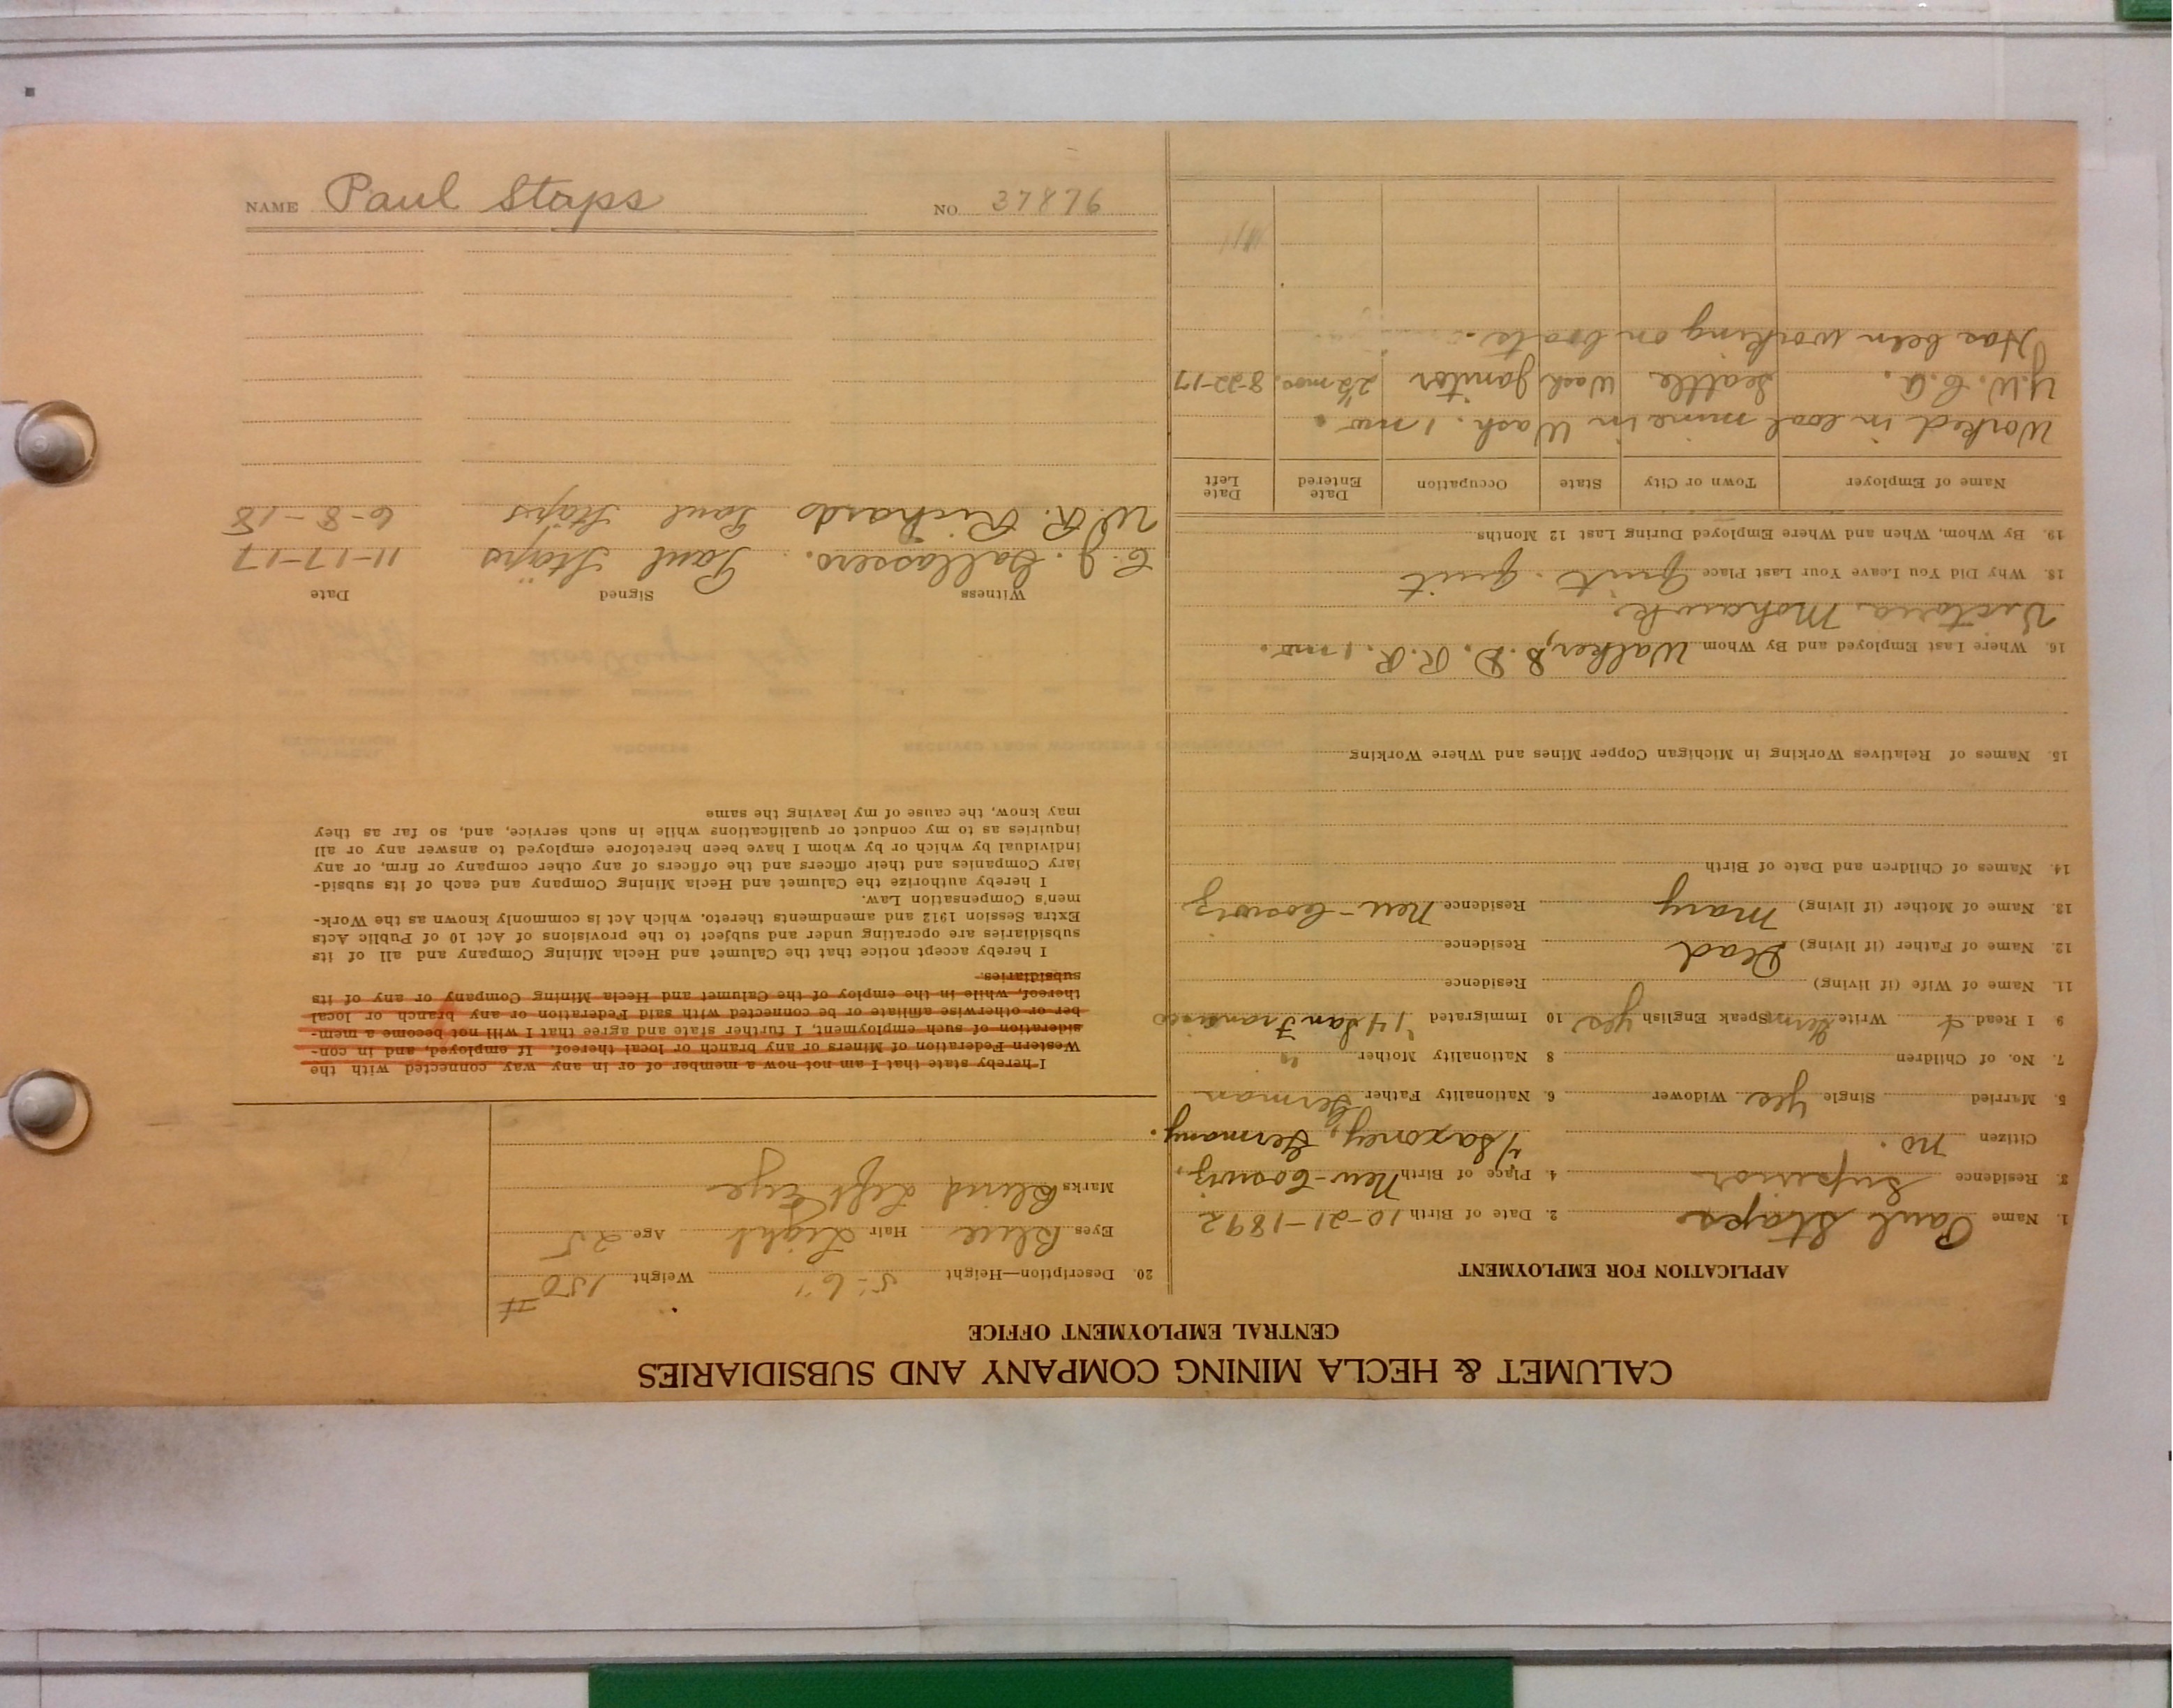 CALUMET & HECLA MINING COMPANY AND SUBSIDIARIES
CENTRAL EMPLOYMENT OFFICE
APPLICATION FOR EMPLOYMENT
1. Name Paul Staps 2. Date of Birth 10-21-1892
3. Residence Superior 4. Place of Birth New-Coswig,
Citizen no. Saxoney, Germany.
5. Married Single yes Widower 6. Nationality Father German
7. No. of Children 8 Nationality Mother "
9 I Read & Write Germ Speak English yes 10 Immigrated '14 San Francisco
11. Name of Wife (if living) Residence
12. Name of Father (if living) Dead Residence
13. Name of Mother (if living) Mary Residence New-Coswig
14. Names of Children and Date of Birth
15. Names of Relatives Working in Michigan Copper Mines and Where Working
16. Where Last Employed and By Whom Walker, S. D. R. R. 1 mo.
Victoria, Mohawk
18. Why Did You Leave Your Last Place Quit. Quit
19. By Whom, When and Where Employed During Last 12 Months
Name of Employer Town or City State Occupation Date Entered Date Left
Worked in coal mine in Wash. 1 mo.
Y.W.C.A. Seattle Wash Janitor 2½ mos. 8-22-17
Has been working on boats.
20. Description—Height 5'-6" Weight 150 #
Eyes Blue Hair Light Age 25
Marks Blind Left Eye
I hereby state that I am not now a member of or in any way connected with the
Western Federation of Miners or any branch or local thereof. If employed, and in con-
sideration of such employment, I further state and agree that I will not become a mem-
ber or otherwise affiliate or be connected with said Federation or any branch or local
thereof, while in the employ of the Calumet and Hecla Mining Company or any of its
subsidiaries.
I hereby accept notice that the Calumet and Hecla Mining Company and all of its
subsidiaries are operating under and subject to the provisions of Act 10 of Public Acts
Extra Session 1912 and amendments thereto, which Act is commonly known as the Work-
men's Compensation Law.
I hereby authorize the Calumet and Hecla Mining Company and each of its subsid-
iary Companies and their officers and the officers of any other company or firm, or any
individual by which or by whom I have been heretofore employed to answer any or all
inquiries as to my conduct or qualifications while in such service, and, so far as they
may know, the cause of my leaving the same
Witness Signed Date
C. J. Paul Staps 11-17-17
W. R. Richards Paul Staps 6-8-18
NAME Paul Staps NO. 37876